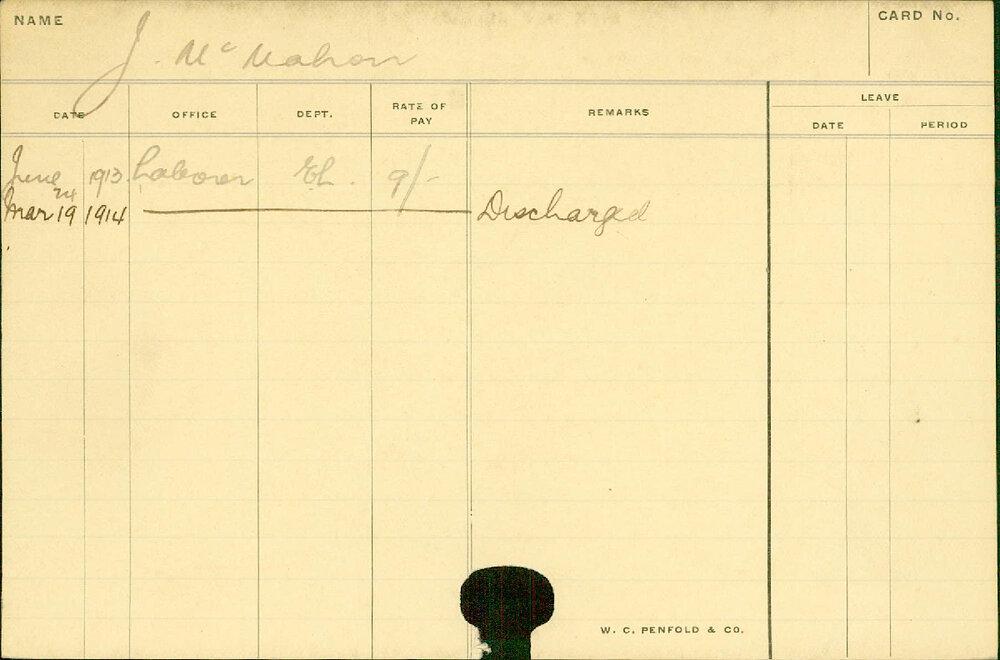 NAME
J. McMahon
CARD No.
DATE OFFICE DEPT. RATE OF PAY REMARKS LEAVE
DATE PERIOD
June 24 1913 Laborer 9/-
Mar 19 1914 Discharged
W. C. PENFOLD & CO.